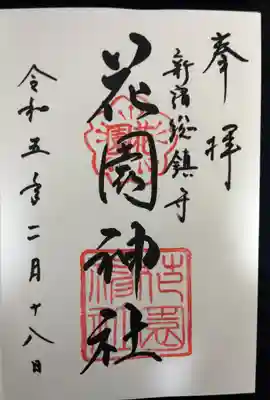 奉拝
新宿総鎮守
花園神社
令和五年二月十八日